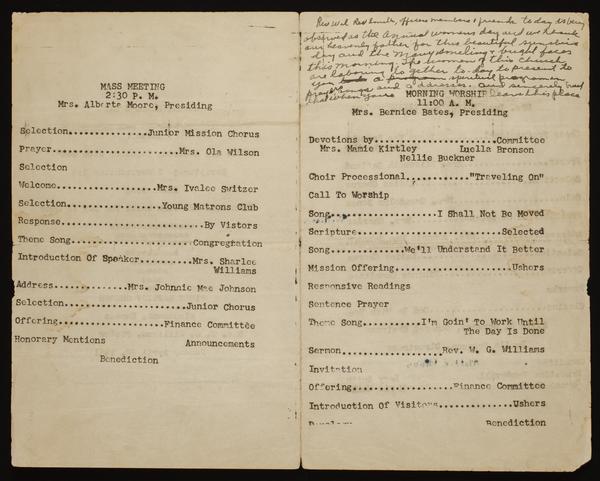 MASS MEETING
2:30 P. M.
Mrs. Alberta Moore, Presiding
Selection..............Junior Mission Chorus
Prayer......................Mrs. Ola Wilson
Selection
Welcome.................Mrs. Ivalee Switzer
Selection.................Young Matrons Club
Response.........................By Vistors
Theme Song.....................Congregation
Introduction Of Speaker.........Mrs. Sharlee
Williams
Address.............Mrs. Johnnie Mae Johnson
Selection.....................Junior Chorus
Offering..................Finance Committee
Honorary Mentions Announcements
Benediction
officers members & friends to day is being
observed as the annual womans day and we thank
our heavenly father for this beautiful sun shine
day and the many smeling & bright faces
this morning, The women of this church
are labouring to gether to-day to present to
you a spiritual programen
songs and addresses. and sincerely trust
that when you leave this place
MORNING WORSHIP
11:00 A. M.
Mrs. Bernice Bates, Presiding
Devotions by....................Committee
Mrs. Mamie Kirtley Luella Bronson
Nellie Buckner
Choir Processional.........."Traveling On"
Call To Worship
Song..................I Shall Not Be Moved
Scripture.........................Selected
Song............We'll Understand It Better
Mission Offering....................Ushers
Responsive Readings
Sentence Prayer
Theme Song..........I'm Goin' To Work Until
The Day Is Done
Sermon.................Rev. W. G. Williams
Invitation
Offering..................Finance Committee
Introduction Of Visitors.............Ushers
Benediction